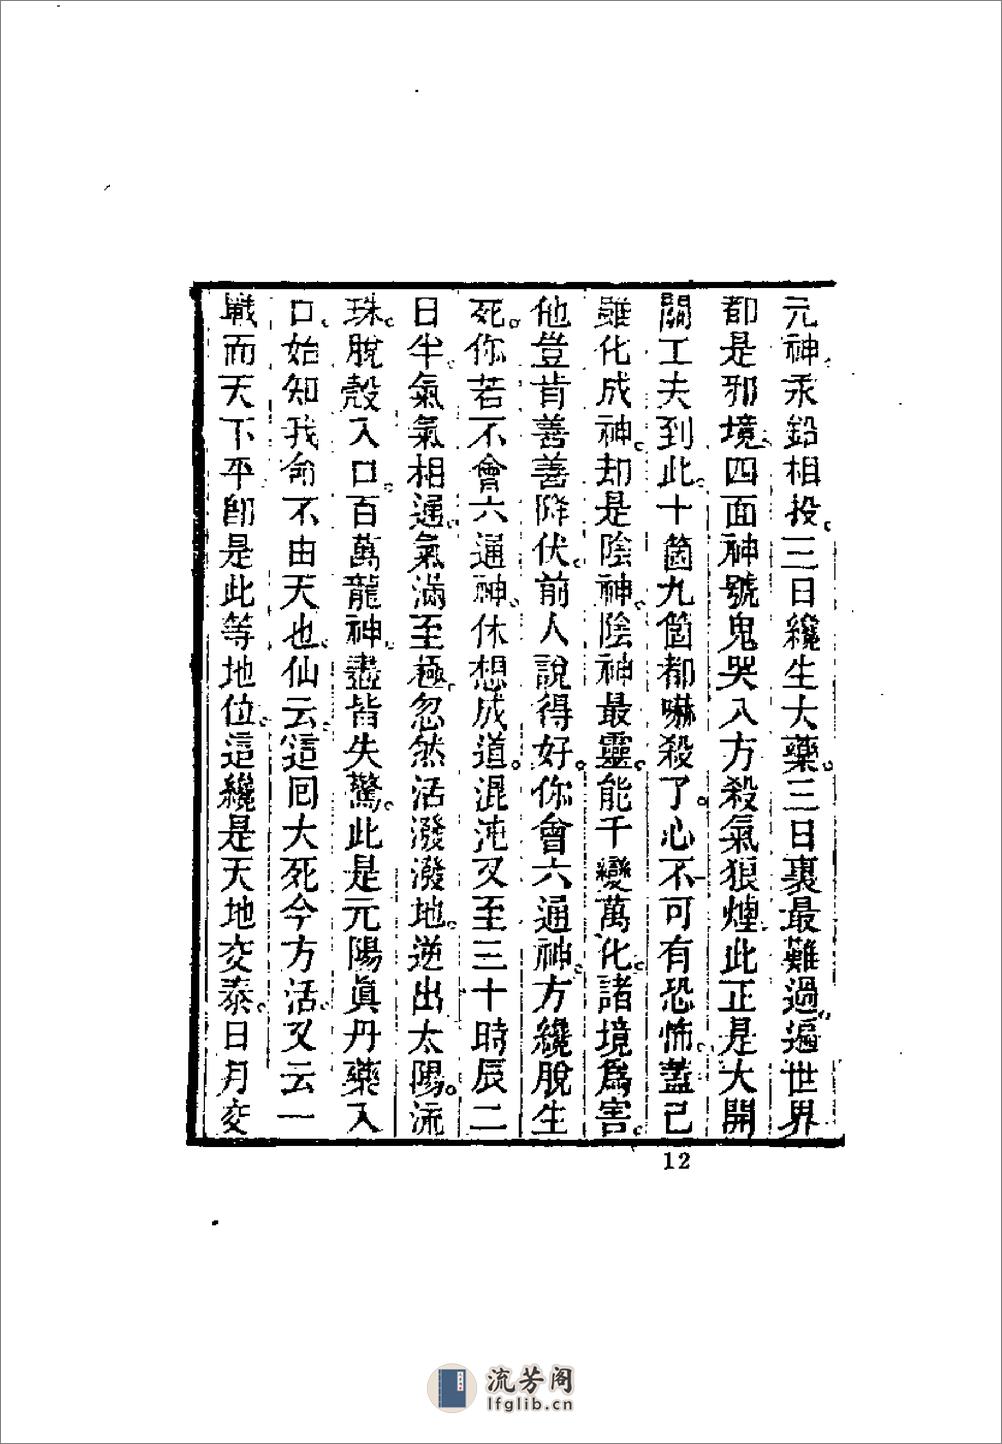 元神。汞鉛相投。三日纔生大藥。三日裏最難過。遍世界
都是邪境。四面神號鬼哭。八方殺氣狼煙。此正是大開
關工夫到此。十箇九箇都嚇殺了。心不可有恐怖。蓋己
雖化成神。却是陰神。陰神最靈。能千變萬化。諸境爲害。
他豈肯善善降伏。前人說得好。你會六通神。方纔脫生
死。你若不會六通神。休想成道。混沌又至三十時辰二
日半。氣氣相通。氣滿至極。忽然活潑潑地。逆出太陽。流
珠。脫殼入口。百萬龍神。盡皆失驚。此是元陽眞丹藥入
口。始知我命不由天也。仙云。這回大死今方活。又云一
戰而天下平。卽是此等地位。這纔是天地交泰。日月交
12
流芳阁
lfglib.cn